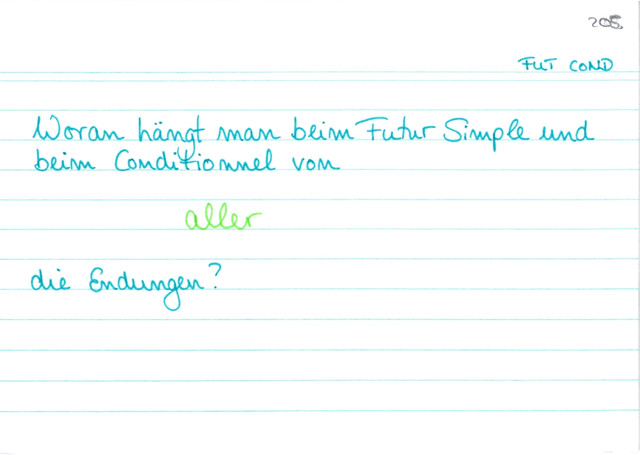 205.
FUT COND
Woran hängt man beim Futur Simple und
beim Conditionnel von
aller
die Endungen?